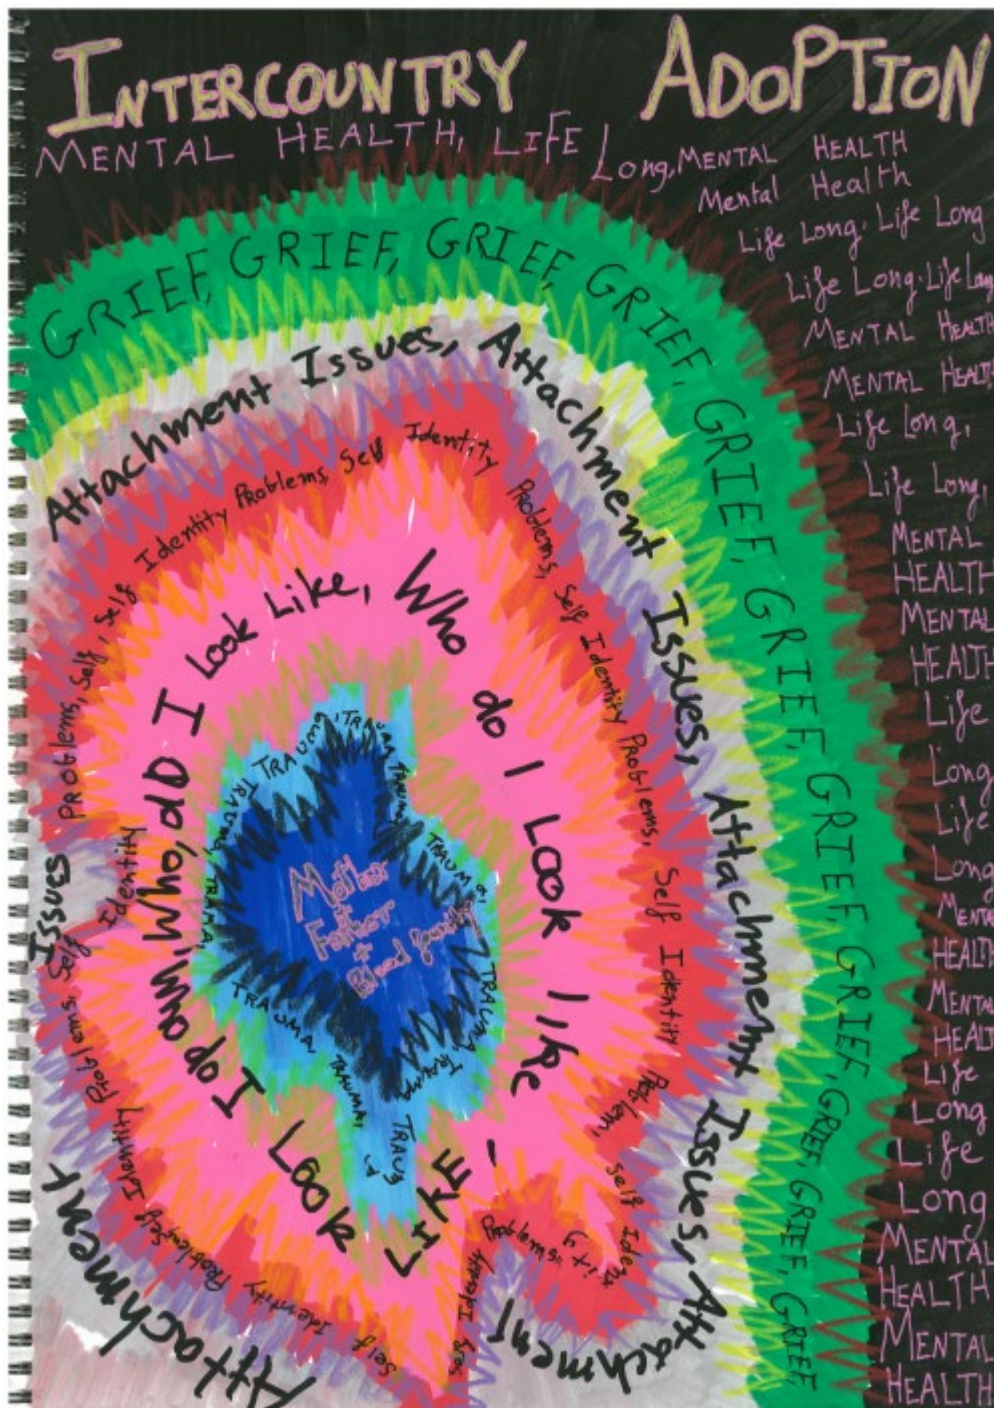 INTERCOUNTRY ADOPTION
MENTAL HEALTH, LIFE Long, MENTAL HEALTH
Mental Health
Life Long, Life Long
Life Long, Life Long
MENTAL HEALTH
MENTAL HEALTH
Life Long,
Life Long,
MENTAL
HEALTH
MENTAL
HEALTH
Life
Long
Life
Long
MENTAL
HEALTH
MENTAL
HEALTH
Life
Long
Life
Long
MENTAL
HEALTH
MENTAL
HEALTH
GRIEF, GRIEF, GRIEF, GRIEF, GRIEF, GRIEF, GRIEF, GRIEF, GRIEF, GRIEF, GRIEF,
Attachment Issues, Attachment Issues, Attachment Issues, Attachment
Attachment
Issues
Problems, Self, Self Identity Problems, Self Identity Problems, Self Identity Problems, Self Identity Problems, Self Identity Problems,
Self Identity Problems Self Identity Problems Self Identity
Who, do I Look Like, Who do I Look like
Who do I Look LIKE
TRAUMA, TRAUMA, TRAUMA, TRAUMA, TRAUMA, TRAUMA, TRAUMA
Mother
+
Father
+
Blood family